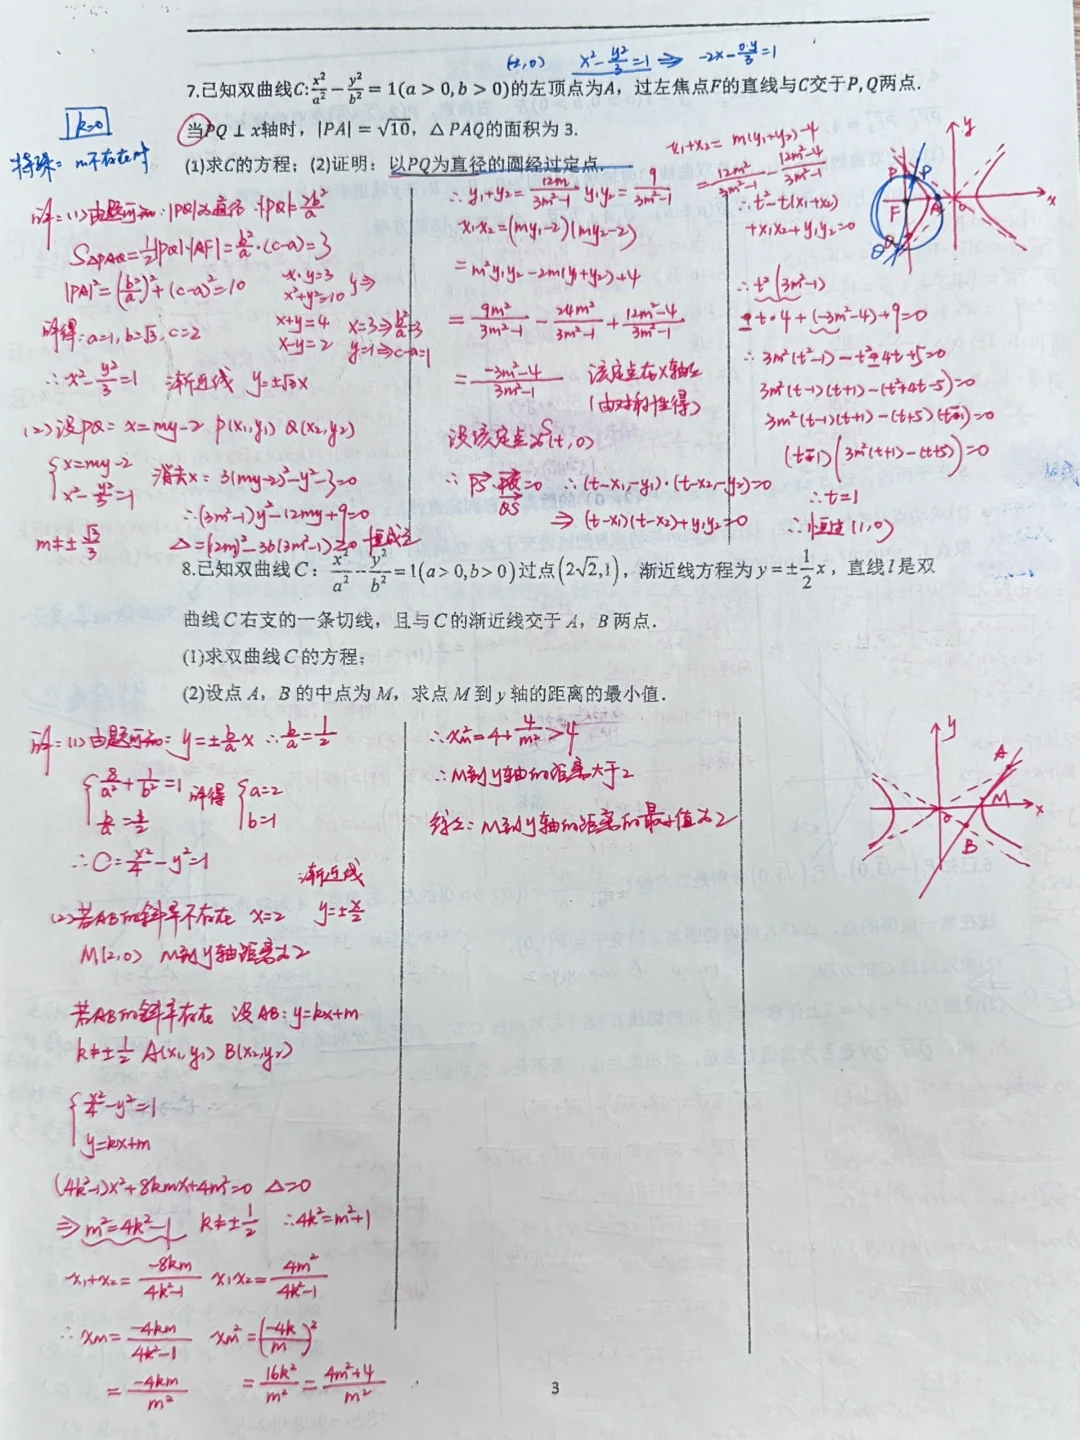 (-2,0) x²-y²/3=1 ⇒ -2x-0·y/3=1
7.已知双曲线C:x²/a²-y²/b²=1(a>0,b>0)的左顶点为A，过左焦点F的直线与C交于P,Q两点.
当PQ⊥x轴时，|PA|=√10，△PAQ的面积为3.
(1)求C的方程；(2)证明：以PQ为直径的圆经过定点.
k=0
特殊=m不存在时
解=(1)由题可知:|PQ|为通径 ∴|PQ|=2b²/a
S△PAQ=1/2|PQ|·|AF|=b²/a·(c-a)=3
|PA|²=(b²/a)²+(c-a)²=10
x·y=3
x²+y²=10
y⇒
x+y=4 x=3⇒b²/a=3
x-y=2 y=1⇒c-a=1
解得:a=1,b=√3,c=2
∴x²-y²/3=1 渐近线 y=±√3x
(2)设PQ=x=my-2 P(x₁,y₁) Q(x₂,y₂)
{x=my-2
x²-y²/3=1 消去x=3(my-2)²-y²-3=0
∴(3m²-1)y²-12my+9=0
m≠±√3/3 Δ=(12m)²-36(3m²-1)≥0 恒成立
∴y₁+y₂=12m/3m²-1 y₁y₂=9/3m²-1
x₁x₂=(my₁-2)(my₂-2)
=m²y₁y₂-2m(y₁+y₂)+4
=9m²/3m²-1-24m²/3m²-1+12m²-4/3m²-1
=-3m²-4/3m²-1 该定点在x轴上
(由对称性得)
设该定点为S(t,0)
∴PS·QS=0 ∴(t-x₁,-y₁)·(t-x₂,-y₂)=0
⇒(t-x₁)(t-x₂)+y₁y₂=0
x₁+x₂=m(y₁+y₂)-4
=12m²/3m²-1-12m²-4/3m²-1
∴t²-t(x₁+x₂)
+x₁x₂+y₁y₂=0
∴t²(3m²-1)
-t·4+(-3m²-4)+9=0
∴3m²(t²-1)-t²-4t+5=0
3m²(t-1)(t+1)-(t²+4t-5)=0
3m²(t-1)(t+1)-(t+5)(t-1)=0
(t-1)(3m²(t+1)-(t+5))=0
∴t=1
∴恒过(1,0)
y
P
P
F
A
O
x
Q
Q
8.已知双曲线C：x²/a²-y²/b²=1(a>0,b>0)过点(2√2,1)，渐近线方程为y=±1/2x，直线l是双
曲线C右支的一条切线，且与C的渐近线交于A，B两点.
(1)求双曲线C的方程；
(2)设点A，B的中点为M，求点M到y轴的距离的最小值.
解=(1)由题可知=y=±b/a x ∴b/a=1/2
{8/a²+1/b²=1
b/a=1/2 解得 {a=2
b=1
∴C=x²/4-y²=1
渐近线
(2)若AB的斜率不存在 x=2 y=±x/2
M(2,0) M到y轴距离为2
若AB的斜率存在 设AB:y=kx+m
k≠±1/2 A(x₁,y₁) B(x₂,y₂)
{x²/4-y²=1
y=kx+m
(4k²-1)x²+8kmx+4m²=0 Δ=0
⇒m²=4k²-1 k≠±1/2 ∴4k²=m²+1
x₁+x₂=-8km/4k²-1 x₁x₂=4m²/4k²-1
∴xM=-4km/4k²-1 xM²=(-4k/m)²
=-4km/m² =16k²/m²=4m²+4/m²
∴xM²=4+4/m²>4
∴M到y轴的距离大于2
综上:M到y轴的距离的最小值为2
y
A
M
x
O
B
3